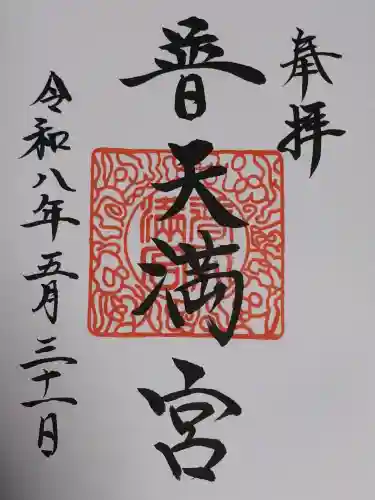 奉拝
普天満宮
令和八年五月三十一日